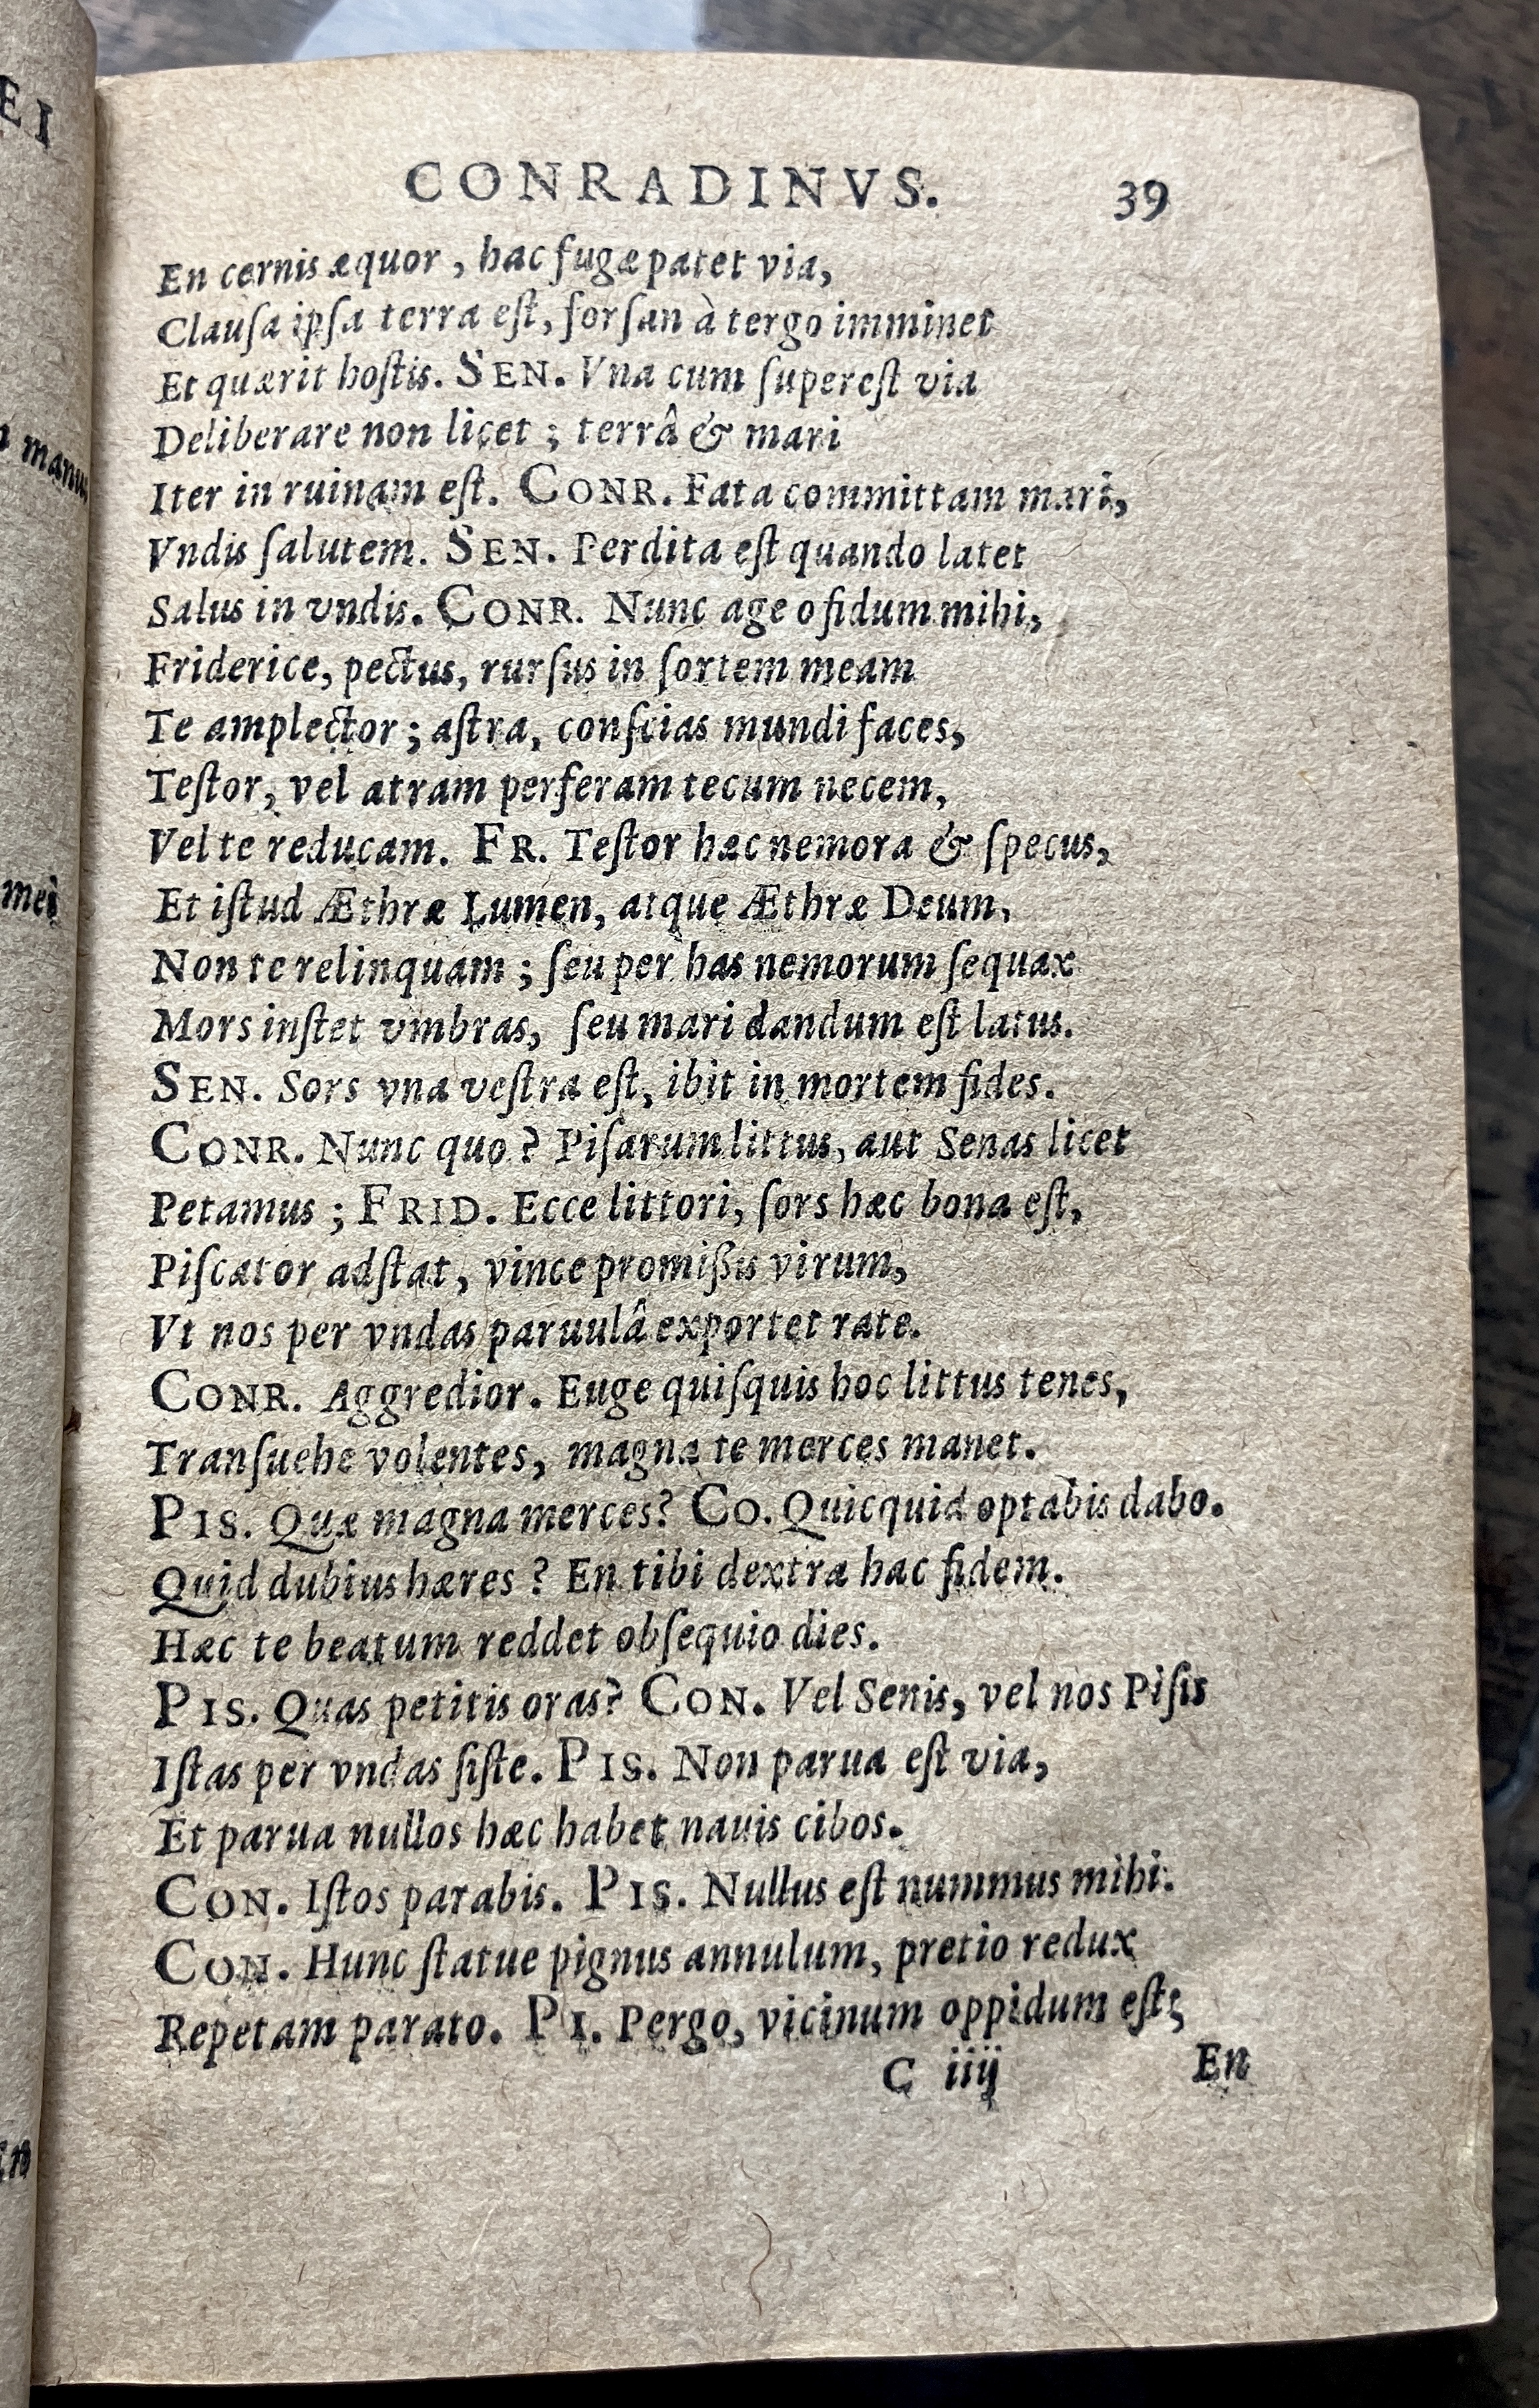 EI
manu
mei
CONRADINVS. 39
En cernis æquor, hac fugæ patet via,
Clauſa ipſa terra eſt, forſan à tergo imminet
Et quærit hoſtis. SEN. Vna cum ſupereſt via
Deliberare non licet ; terrâ & mari
Iter in ruinam eſt. CONR. Fata committam mari,
Vndis ſalutem. SEN. Perdita eſt quando latet
Salus in vndis. CONR. Nunc age o fidum mihi,
Friderice, pectus, rurſus in ſortem meam
Te amplector ; aſtra, conſcias mundi faces,
Teſtor, vel atram perferam tecum necem,
Vel te reducam. FR. Teſtor hæc nemora & ſpecus,
Et iſtud Æthræ Lumen, atque Æthræ Deum,
Non te relinquam ; ſeu per has nemorum ſequax
Mors inſtet vmbras, ſeu mari dandum eſt latus.
SEN. Sors vna veſtra eſt, ibit in mortem fides.
CONR. Nunc quo ? Piſarum littus, aut Senas licet
Petamus ; FRID. Ecce littori, ſors hæc bona eſt,
Piſcator adſtat, vince promißis virum,
Vt nos per vndas paruulâ exportet rate.
CONR. Aggredior. Euge quiſquis hoc littus tenes,
Tranſuehe volentes, magna te merces manet.
PIS. Quæ magna merces? CO. Quicquid optabis dabo.
Quid dubius hæres ? En tibi dextra hac fidem.
Hæc te beatum reddet obſequio dies.
PIS. Quas petitis oras? CON. Vel Senis, vel nos Piſis
Iſtas per vndas ſiſte. PIS. Non parua eſt via,
Et parua nullos hæc habet nauis cibos.
CON. Iſtos parabis. PIS. Nullus eſt nummus mihi.
CON. Hunc ſtatue pignus annulum, pretio redux
Repetam parato. PI. Pergo, vicinum oppidum eſt;
C iiij En